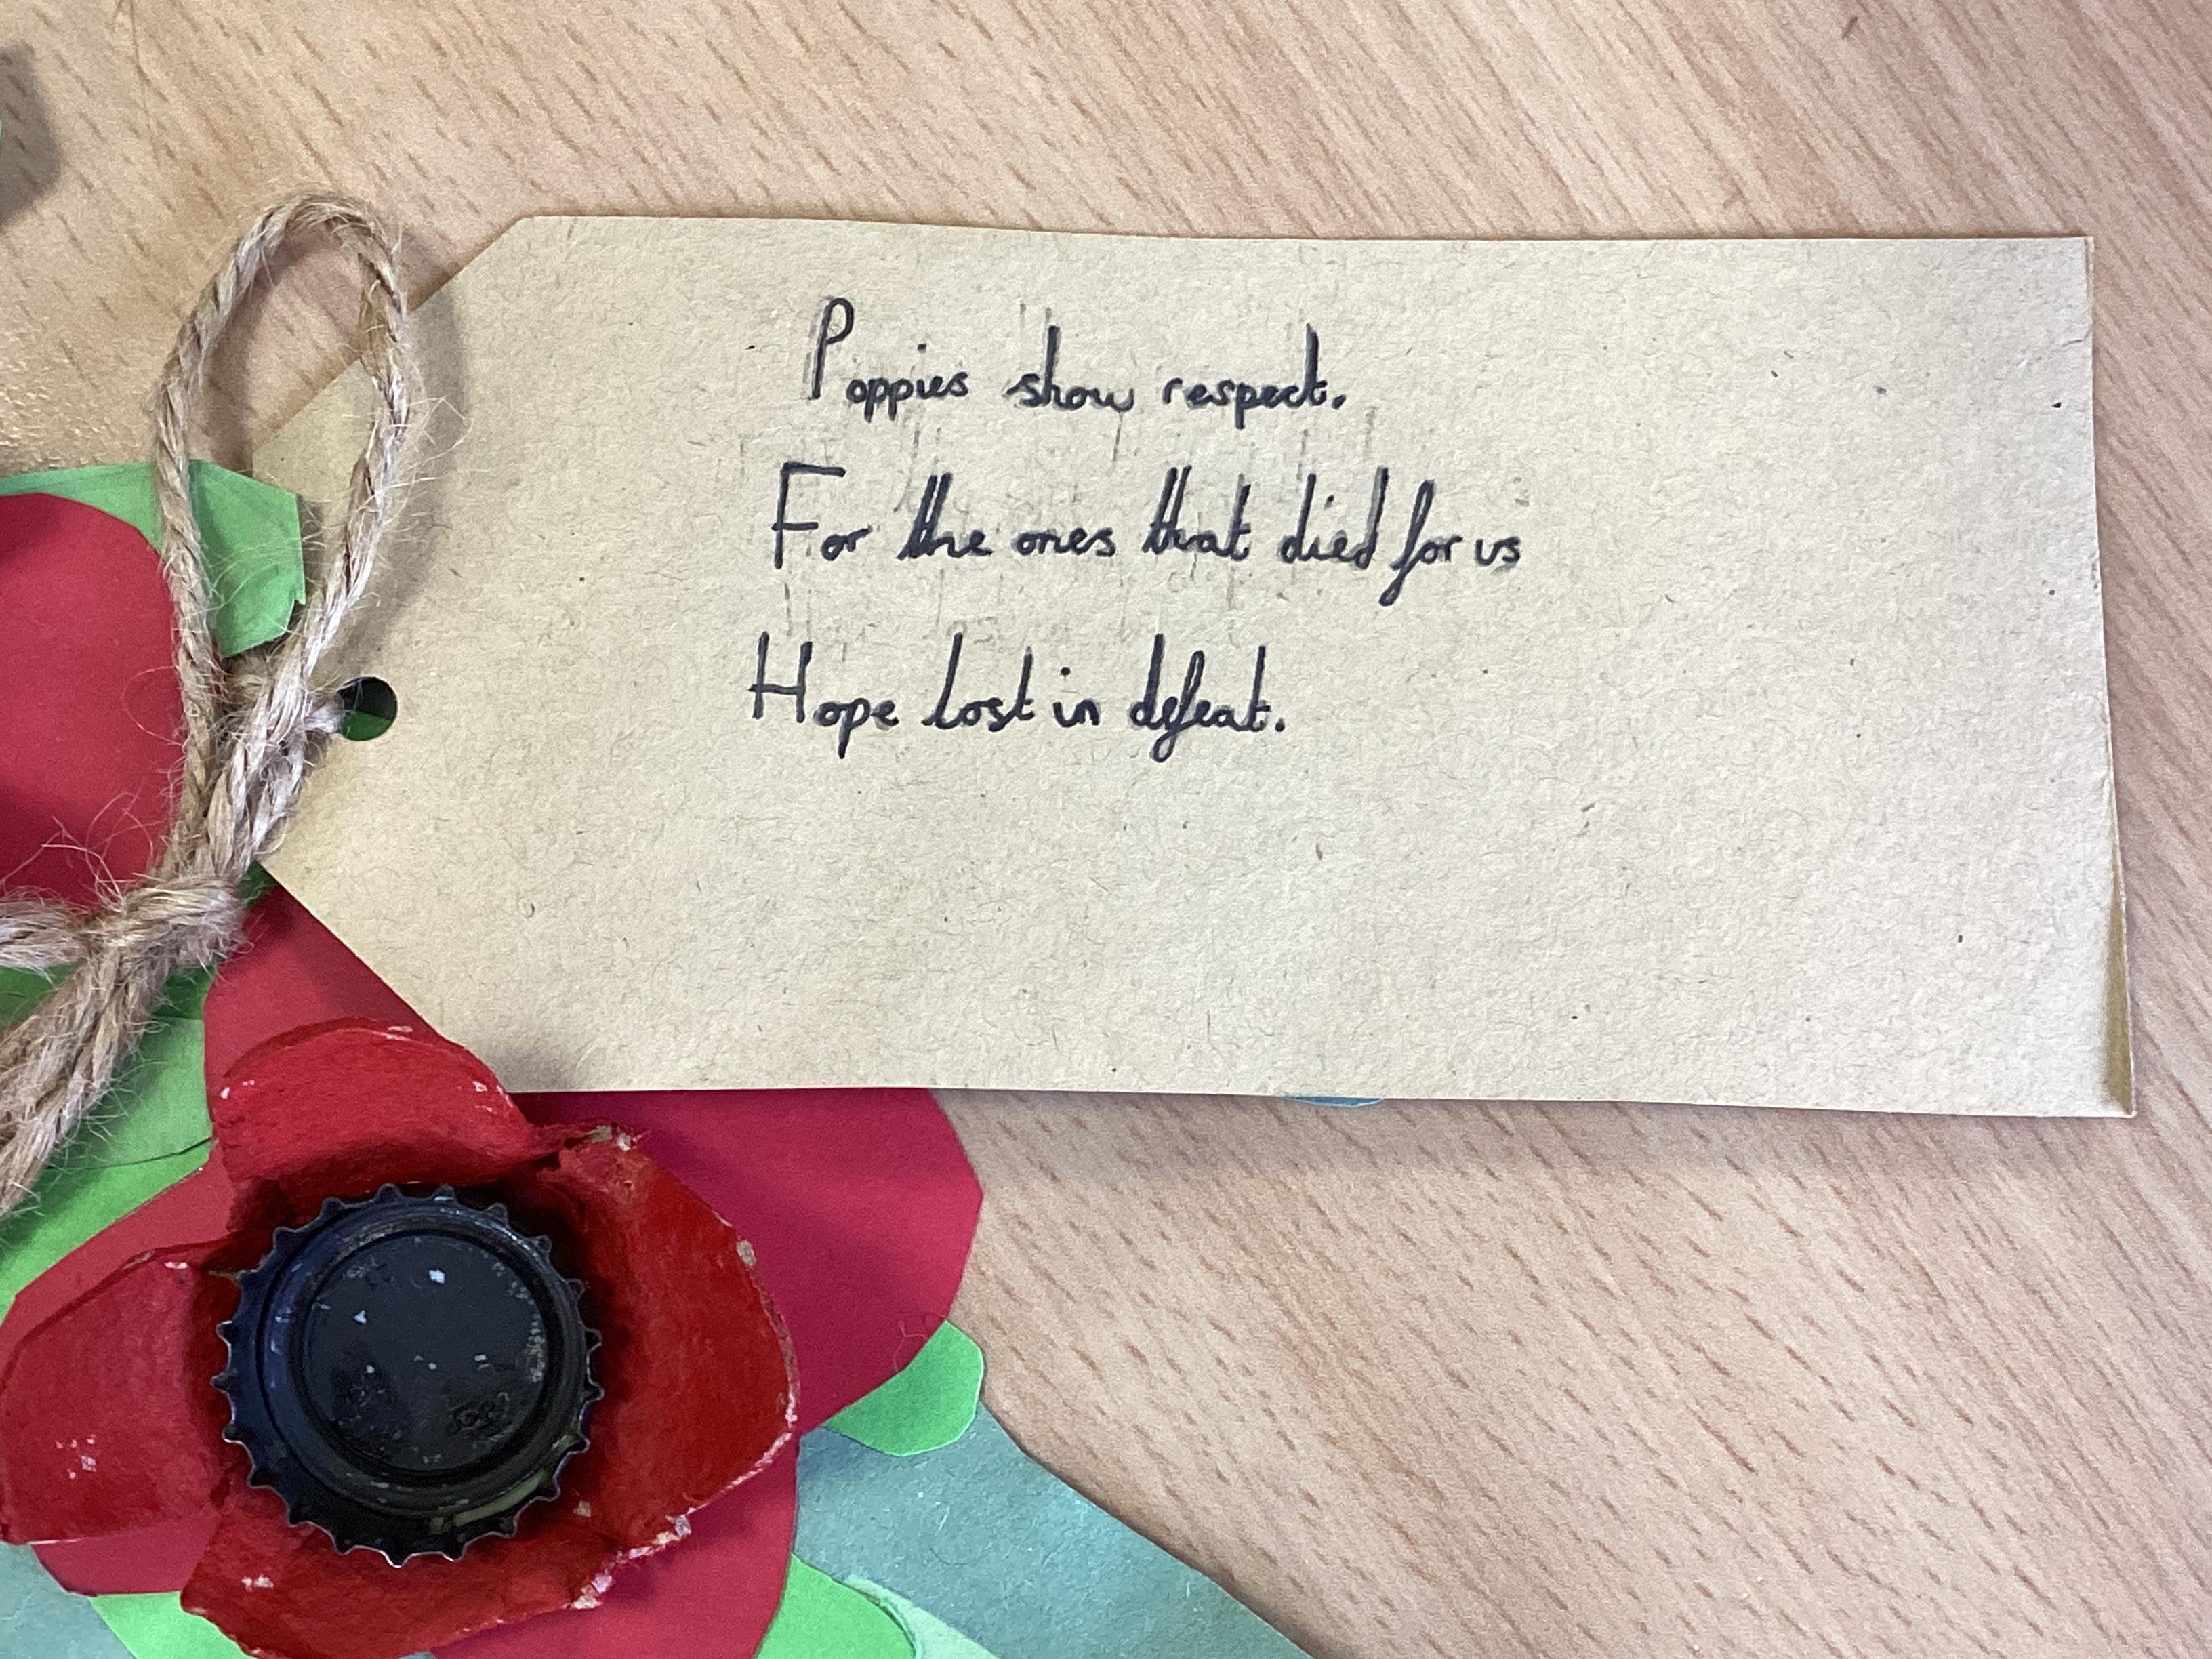 Poppies show respect.
For the ones that died for us
Hope lost in defeat.